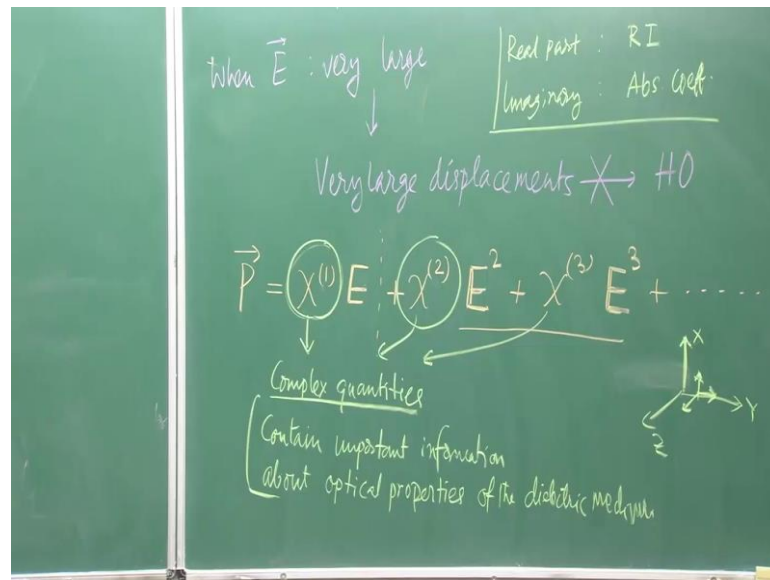 When E⃗ : very large
Real part : RI
Imaginary : Abs. Coeff.
↓
Very large displacements X→ HO
P⃗ = χ⁽¹⁾ E + χ⁽²⁾ E² + χ⁽³⁾ E³ + ......
Complex quantities
Contain important information
about optical properties of the dielectric medium
X
Y
Z